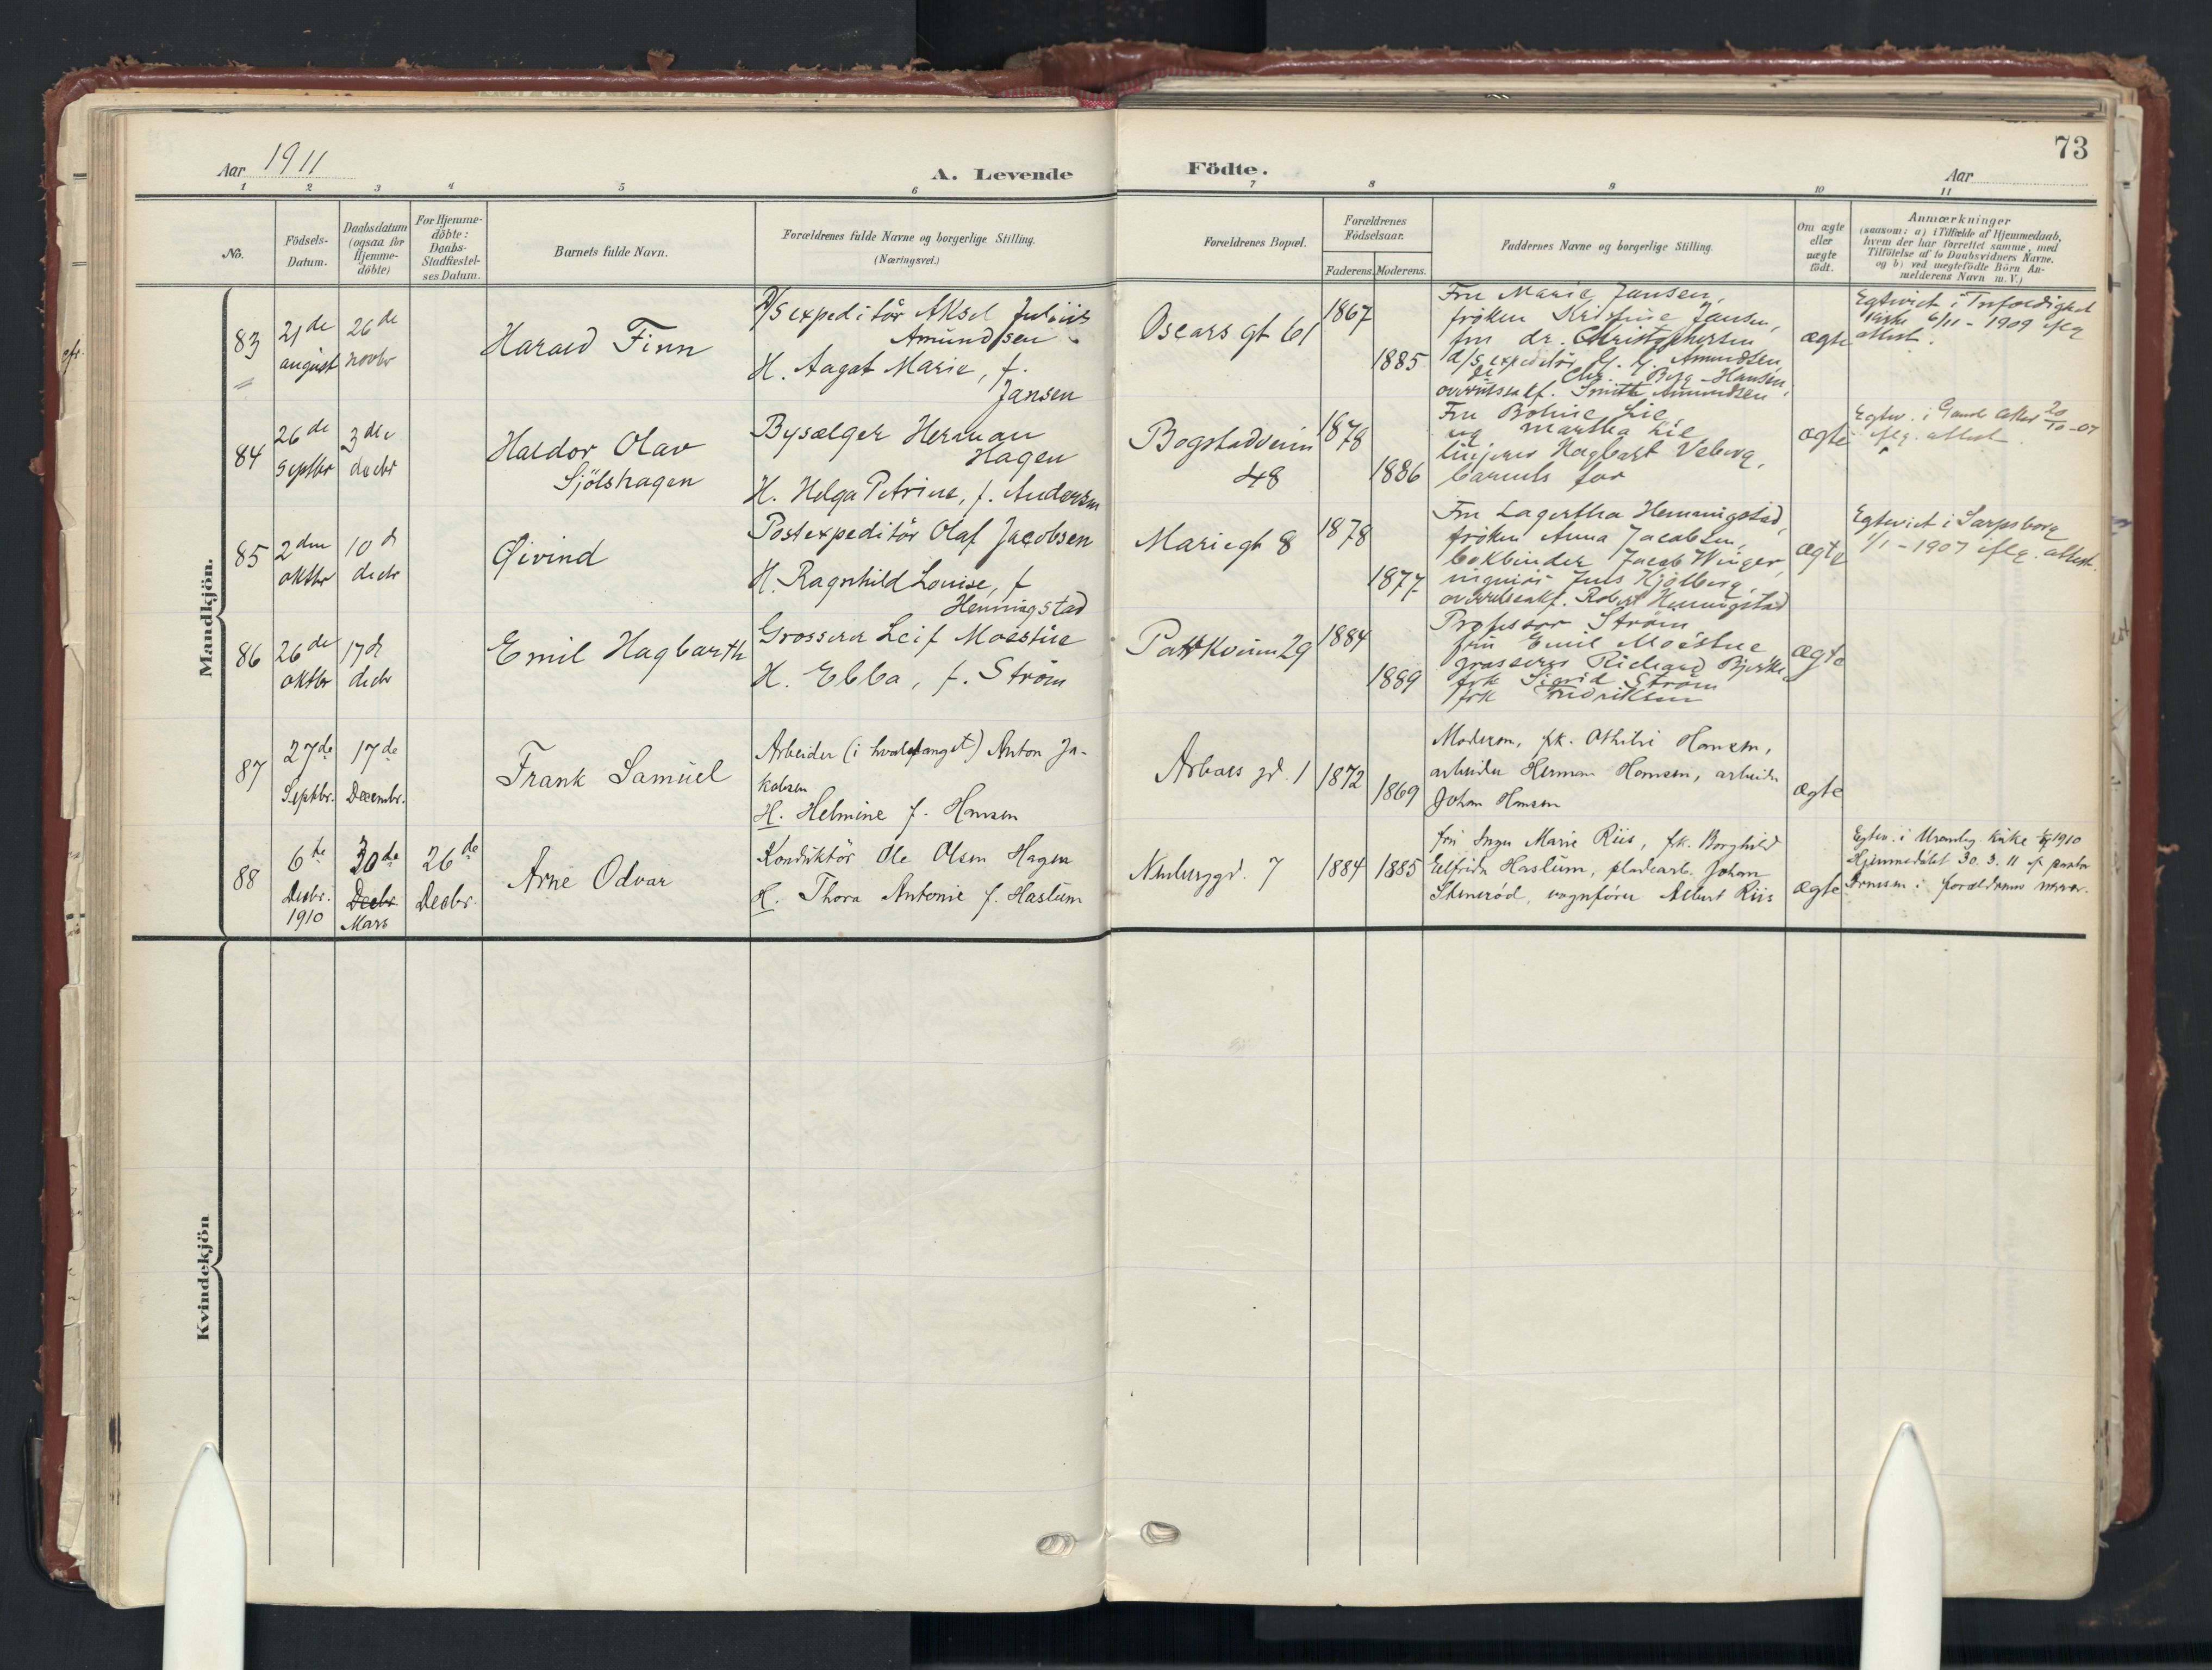 73
Aar 1911
A. Levende Födte.
Aar
1 2 3 4 5 6 7 8 9 10 11
No.
Födsels-Datum.
Daabsdatum (ogsaa for Hjemme-döbte)
For Hjemme-döbte: Daabs-Stadfæstel-ses Datum.
Barnets fulde Navn.
Forældrenes fulde Navne og borgerlige Stilling.
(Næringsvei.)
Forældrenes Bopæl.
Forældrenes Födselsaar.
Faderens. Moderens.
Faddernes Navne og borgerlige Stilling.
Om ægte eller uægte födt.
Anmærkninger
(saasom: a) i Tilfælde af Hjemmedaab, hvem der har forrettet samme, med Tilföielse af to Daabsvidners Navne, og b) ved uægtefödte Börn An-melderens Navn m. V.)
Mandkjön.
83
21de august
26de novbr
Harald Finn
D/S expeditör Aksel Julius
Amundsen
H. Aagot Marie, f.
Jansen
Oscars gt 61
1867
1885
Fru Marie Jansen,
frøken Jansen,
fru dr. Christophersen
d/s expeditör Amundsen
Chr. Berg-Hansen
Smith Amundsen
ægte
Egteviet i Trefoldighed
kirke 6/11 - 1909 iflg
attest.
84
26de Septbr
3die decbr
Haldor Olav
Sjölshagen
Bysælger Herman
Hagen
H. Helga Petrine, f. Andersen
Bogstadveien
48
1878
1886
Fru Lie
Martha Lie
Hagbart
barnets far
ægte
Egtev. i Gamle Aker 20/10-07
iflg. attest.
85
2den oktbr
10d decbr
Øivind
Postexpeditör Olaf Jacobsen
H. Ragnhild Louise, f
Henningstad
Mariegt 8
1878
1877
Fru Lagertha Henningstad,
frøken Anna Jacobsen,
bokbinder Jacob Winger,
Jens
Robert Henningstad
ægte
Egteviet i Sarpsborg
1/1 - 1907 iflg. attest.
86
26de oktbr
17d decbr
Emil Hagbarth
Grosserer Leif Moestue
H. Ebba, f. Ström
Parkveien 29
1884
1889
Professor Ström
fru Emil Moestue
grosserer Richard Bjerke
frk Sigrid Ström
frk Fredriksen
ægte
87
27de Septbr.
17de Decembr.
Frank Samuel
Arbeider (i hvalfanget) Anton Ja-
kobsen
H. Helmine f. Hansen
Arbos gd. 1
1872
1869
Moderen, frk. Hansen,
arbeider Herman Hansen, arbeider
Johan Hansen
ægte
88
6te Decbr. 1910
30de Decbr Mars
26de Decbr.
Arne Odvar
Konduktör Ole Olsen Hagen
H. Thora Antonie f. Haslum
7
1884
1885
fru Inga Marie Riis, frk. Borghild
Elfrida Haslum, pladearb. Johan
Stenerød, vognfører Albert Riis
ægte
Egtev. i Uranienbg. kirke 1910
Hjemmedöbt 30.3.11 af pastor
i forældrenes nærvær.
Kvindekjön